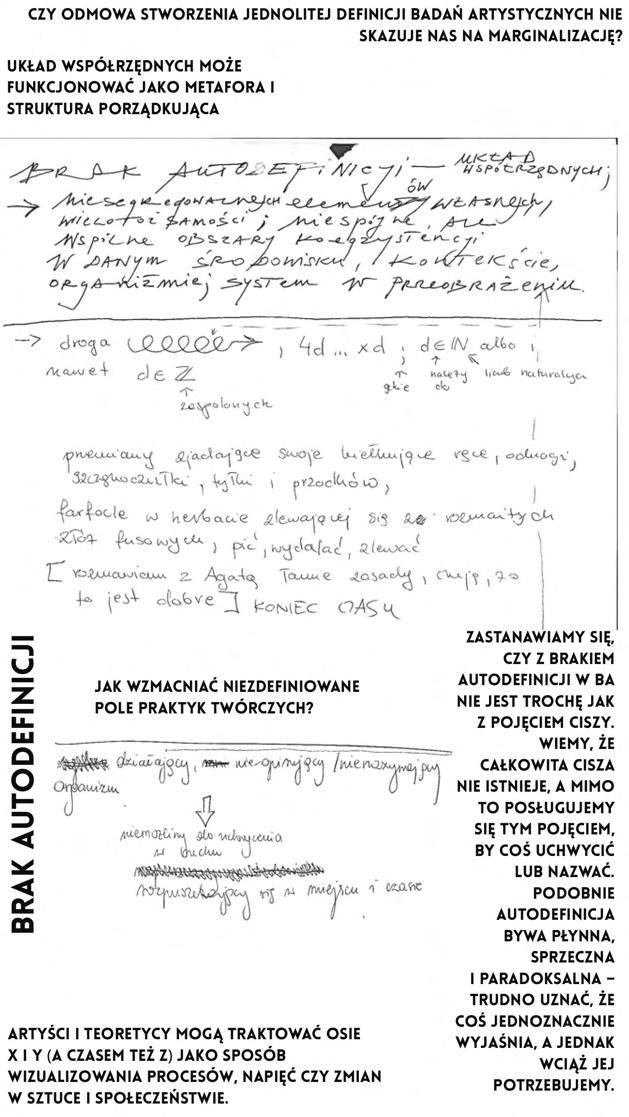 CZY ODMOWA STWORZENIA JEDNOLITEJ DEFINICJI BADAŃ ARTYSTYCZNYCH NIE
SKAZUJE NAS NA MARGINALIZACJĘ?
UKŁAD WSPÓŁRZĘDNYCH MOŻE
FUNKCJONOWAĆ JAKO METAFORA I
STRUKTURA PORZĄDKUJĄCA
BRAK AUTODEFINICJI — UKŁAD
WSPÓŁRZĘDNYCH;
→ niesegregowalnych elementów WŁASNYCH,
WIELOTOŻSAMOŚCI; NIESPÓJNE, ALE
WSPÓLNE OBSZARY KOEGZYSTENCJI
W DANYM ŚRODOWISKU, KONTEKŚCIE,
ORGANIZMIEJ SYSTEM W PRZEOBRAŻENIU.
→ droga , 4d... xd ; d∈ℕ albo i
nawet d∈ℤ
gdzie należy do liczb naturalnych
zespolonych
przemiany zjadające swoje ręce, odnogi,
szczęnoczułki, tyłki i przodków,
farfocle w herbacie zlewającej się ze rozmaitych
złóż fusowych, pić, wydalać, zlewać
[rozmawiam z Agatą zasady, czuję, że
to jest dobre] KONIEC CZASU
BRAK AUTODEFINICJI
JAK WZMACNIAĆ NIEZDEFINIOWANE
POLE PRAKTYK TWÓRCZYCH?
działający,
organizm
niemożliwy do uchwycenia
w ruchu
się w miejscu i czasie
ZASTANAWIAMY SIĘ,
CZY Z BRAKIEM
AUTODEFINICJI W BA
NIE JEST TROCHĘ JAK
Z POJĘCIEM CISZY.
WIEMY, ŻE
CAŁKOWITA CISZA
NIE ISTNIEJE, A MIMO
TO POSŁUGUJEMY
SIĘ TYM POJĘCIEM,
BY COŚ UCHWYCIĆ
LUB NAZWAĆ.
PODOBNIE
AUTODEFINICJA
BYWA PŁYNNA,
SPRZECZNA
I PARADOKSALNA –
TRUDNO UZNAĆ, ŻE
COŚ JEDNOZNACZNIE
WYJAŚNIA, A JEDNAK
WCIĄŻ JEJ
POTRZEBUJEMY.
ARTYŚCI I TEORETYCY MOGĄ TRAKTOWAĆ OSIE
X I Y (A CZASEM TEŻ Z) JAKO SPOSÓB
WIZUALIZOWANIA PROCESÓW, NAPIĘĆ CZY ZMIAN
W SZTUCE I SPOŁECZEŃSTWIE.